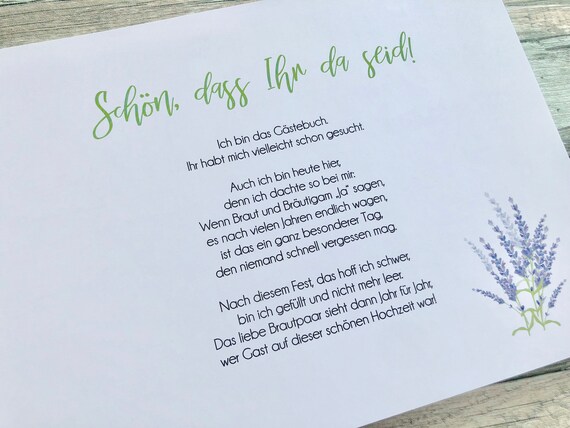 Schön, dass Ihr da seid!
Ich bin das Gästebuch.
Ihr habt mich vielleicht schon gesucht.
Auch ich bin heute hier,
denn ich dachte so bei mir:
Wenn Braut und Bräutigam „Ja“ sagen,
es nach vielen Jahren endlich wagen,
ist das ein ganz besonderer Tag,
den niemand schnell vergessen mag.
Nach diesem Fest, das hoff ich schwer,
bin ich gefüllt und nicht mehr leer.
Das liebe Brautpaar sieht dann Jahr für Jahr,
wer Gast auf dieser schönen Hochzeit war!